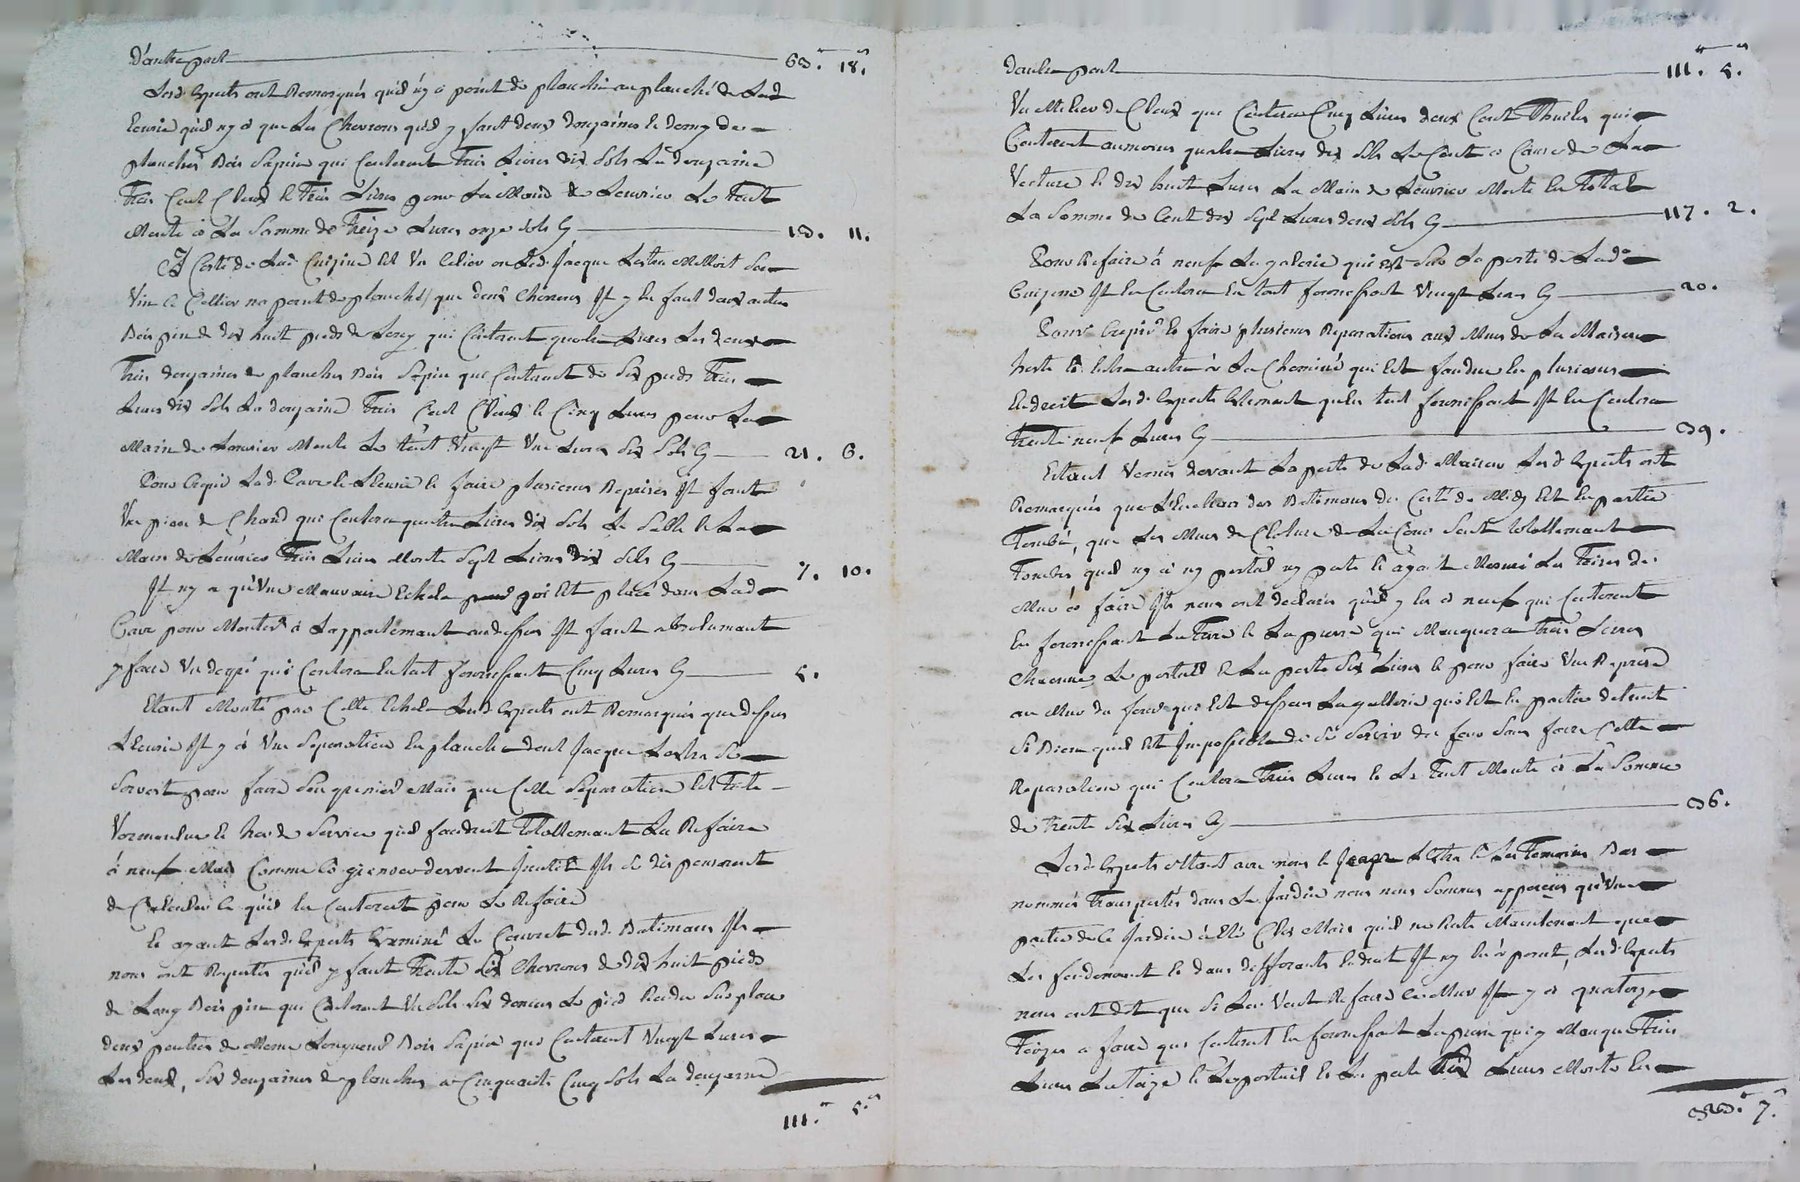 D'autre part 63. 18.
Lesd. Experts ont Remarqués quil ny a point de planche au planché de Lad
Ecurie quil ny a que Les Chevrons quil y faut deux douzaines Et demy de
planches Bois Sapin qui Couteront Trois Livres dix Sols La douzaine
Trois Cent Clouds Et Trois Livres pour La Main de Louvrier Le Tout
Monte à La Somme de Treize Livres onze Sols 13. 11.
à Costé de Lad. Cuizine Est Un Celier ou Led. Jacque Mettoit Son
Vin Ce Cellier na point de planché que deux Chevrons Il y En faut deux autres
Bois pin de dix huit pieds de Long qui Couteront quatre Livres Les deux
Trois douzaines de planches Bois Sapin qui Couteront de Six pieds Trois
Livres dix Sols La douzaine Trois Cent Clouds Et Cinq Livres pour La
Main de Louvrier Monte Le tout Vingt Une Livres Six Sols 21. 6.
Pour Crepir Lad. Cave Et Lecurie Et faire plusieurs Reprises Il faut
Un pieux de Chaud qui Coutera quatre Livres dix Sols Le Sable Et La
Main de Louvrier Trois Livres Monte Sept Livres dix Sols 7. 10.
Il ny a qu'Une Mauvaise Echele qui Est placé dans Lad
Cave pour Monter à Lappartemant audessus Il faut absolumant
y faire Un degré qui Coutera En tout fournissant Cinq Livres 5.
Etant Monté par Cette Echele Lesd. Experts ont Remarqués que dessus
Lecurie Il y à Une Separation En planche dont Jacque Se
Servoit pour faire Son grenier Mais que Cette Separation Est Toute
Vermoulue Et hors de Service quil faudroit Totallemant La Refaire
à neuf Mais Comme Ce grenier devient Inutile Ils Se dispenseront
de Calculer Ce quil En Couteroit pour Le Refaire
Et ayant Lesd. Experts Examiné Le Couvert desd. Batimans Ils
nous ont Raportés quil y faut Trente Six Chevrons de dix huit pieds
de Long Bois pin qui Couteront Un Sols Six deniers Le pied Rendu Sur place
deux poutres de Meme Longueur Bois Sapin qui Couteront Vingt Livres
Les deux, Six douzaines de planches a Cinquante Cinq Sols La douzaine
111. 5.
D'autre part 111. 5.
Un Millier de Clouds qui Coutera Cinq Livres deux Cent Thuiles qui
Couteront aumoins quatre Livres dix Sols Le Cent a Cause de La
Voiture Et dix huit Livres La Main de Louvrier Monte En Total
La Somme de Cent dix Sept Livres deux Sols 117. 2.
Pour Refaire à neuf La galerie qui Est Sur La porte de Lade
Cuizine Il En Coutera En tout fournissant Vingt Livres 20.
Pour Crepir Et faire plusieurs Reparations aux Murs de La Maison
autre à La Cheminée qui Est fendue En plusieurs
Endroit Lesd. Experts Estemant qu'en tout fournissant Il En Coutera
Trente neuf Livres 39.
Etant Venus devant La porte de Lad. Maison Lesd. Experts ont
Remarqués que des Batimans du Costé de Midy Est En partie
Tombé, que Les Murs de Cloture de La Cour Sont Totallemant
Tombés quil ny a ny portail ny porte Et ayant Mesuré Les Toises de
Mur à faire Ils nous ont declarés quil y En a neuf qui Couteront
En fournissant La Terre Et La pierre qui Manquera Trois Livres
Chacune, Le portail Et La porte Six Livres Et pour faire Une Reprise
au Mur du four qui Est dessous La gallerie qui Est En partie detruit
Si Bien quil Est Impossible de Se Servir du four Sans faire Cette
Reparation qui Coutera Trois Livres Et Le Tout Monte à La Somme
de Trente Six Livres 36.
Lesd. Experts Etant avec nous Et Jacque Et Les Temoins Bas
nommés Transportés dans Le Jardin nous nous Sommes apperçus qu'Une
partie de Ce Jardin à Eté Clos Mais quil ne Reste Maintenant que
Les fondemant Et dans differants Endroit Il ny En à point, Lesd. Experts
nous ont dit que Si Lon Veut Refaire Ce Mur Il y a quatorze
Toizes a faire qui Couteront En fournissant La pierre qui y Manque Trois
Livres La Toize Et Le portail Et La porte Six Livres Monte En
323. 7.